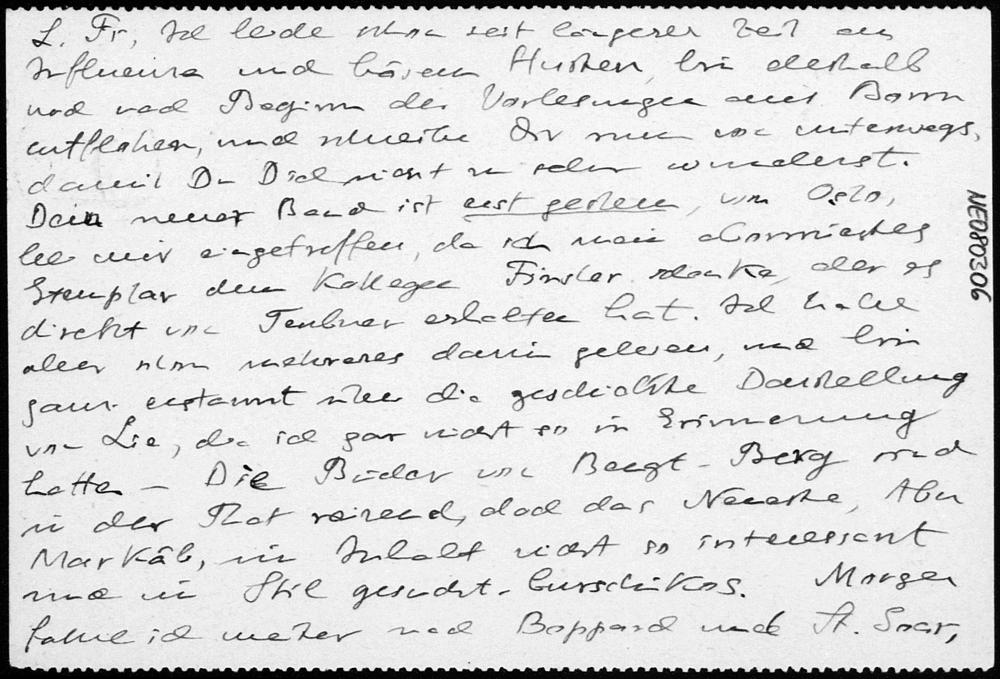 L. Fr, Ich leide schon seit längerer Zeit an
Influenza und bösem Husten, bin deshalb
noch nach Beginn der Vorlesungen aus Bonn
entflohen, und schreibe Dir nun von unterwegs,
damit Du Dich nicht zu sehr wunderst.
Dein neuer Band ist erst gestern, von Oslo,
bei mir eingetroffen, da ich mein
Exemplar dem Kollegen Finsler schenke, der es
direkt von Teubner erhalten hat. Ich habe
aber schon mehreres darin gelesen, und bin
ganz erstaunt über die geschickte Darstellung
von Lie, die ich gar nicht so in Erinnerung
hatte – Die Bücher von Bengt-Berg sind
in der That reizend, doch das Neueste, Abu
Markâb, im Inhalt nicht so interessant
und im Stil gesucht-burschikos. Morgen
fahre ich weiter nach Boppard und St. Goar,
NED80306